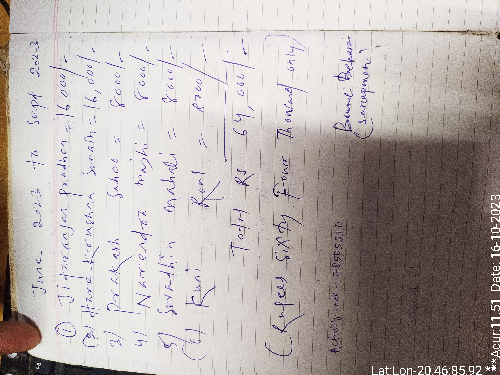 June 2023 to Sept 2023
(1) Jitaranjan pradhan = 16000/-
(2) Hare krushna swain = 16,000/-
3) prakash sahoo = 8000/-
4) Narendra majhi = 8000/-
5) mahali = 8000/-
(6) Runi = 8000/-
Total RS 64,000/-
(Rupees sixty Four Thousand only)
(sarapanch)
Lat:Lon-20.46:85.92 ***Acur:11.51 Date:16-10-2023